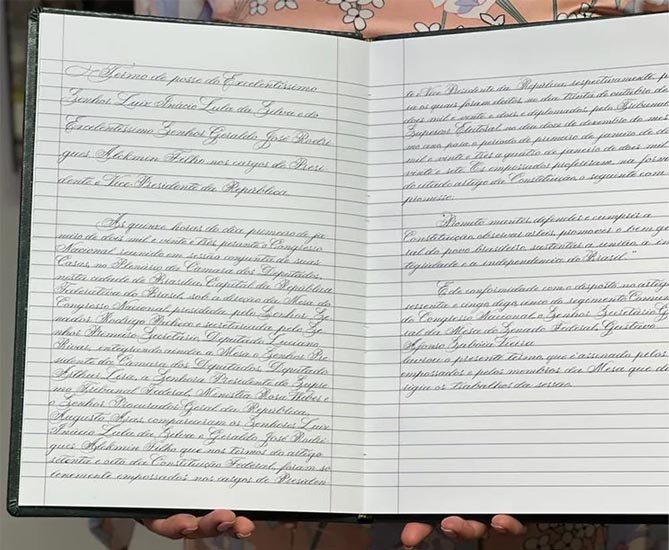 Termo de posse do Excelentíssimo
Senhor Luiz Inácio Lula da Silva e do
Excelentíssimo Senhor Geraldo José Rodri
gues Alckmin Filho nos cargos de Presi
dente e Vice-Presidente da República
Às quinze horas do dia primeiro de ja
neiro de dois mil e vinte e três, perante o Congresso
Nacional reunido em sessão conjunta de suas
Casas, no Plenário da Câmara dos Deputados,
nesta cidade de Brasília, Capital da República
Federativa do Brasil, sob a direção da Mesa do
Congresso Nacional, presidida pelo Senhor Se
nador Rodrigo Pacheco e secretariada pelo Se
nhor Primeiro Secretário, Deputado Luciano
Bivar, integrando ainda a Mesa o Senhor Pre
sidente da Câmara dos Deputados, Deputado
Arthur Lira, a Senhora Presidente do Supre
mo Tribunal Federal, Ministra Rosa Weber e
o Senhor Procurador Geral da República,
Augusto Aras, compareceram os Senhores Luiz
Inácio Lula da Silva e Geraldo José Rodri
gues Alckmin Filho que nos termos do artigo
setenta e oito da Constituição Federal, foram so
lenemente empossados nos cargos de Presiden
te e Vice Presidente da República, respectivamente, p
ra os quais foram eleitos no dia trinta de outubro de
dois mil e vinte e dois e diplomados pelo Tribunal
Superior Eleitoral no dia doze de dezembro do mes
mo ano, para o período de primeiro de janeiro de do
mil e vinte e três a quatro de janeiro de dois mil
vinte e sete. Os empossados proferiram, na form
do citado artigo da Constituição, o seguinte com
promisso:
"Prometo manter, defender e cumprir a
Constituição, observar as leis, promover o bem ge
ral do povo brasileiro, sustentar a união, a in
tegridade e a independência do Brasil."
Em conformidade com o disposto no artigo
sessenta e cinco, do regimento Comu
do Congresso Nacional, o Senhor Secretário G
ral da Mesa do Senado Federal, Gustavo
Afonso Sabóia Vieira
lavrou o presente termo que é assinado pelos
empossados e pelos membros da Mesa que di
rigiu os trabalhos da sessão.